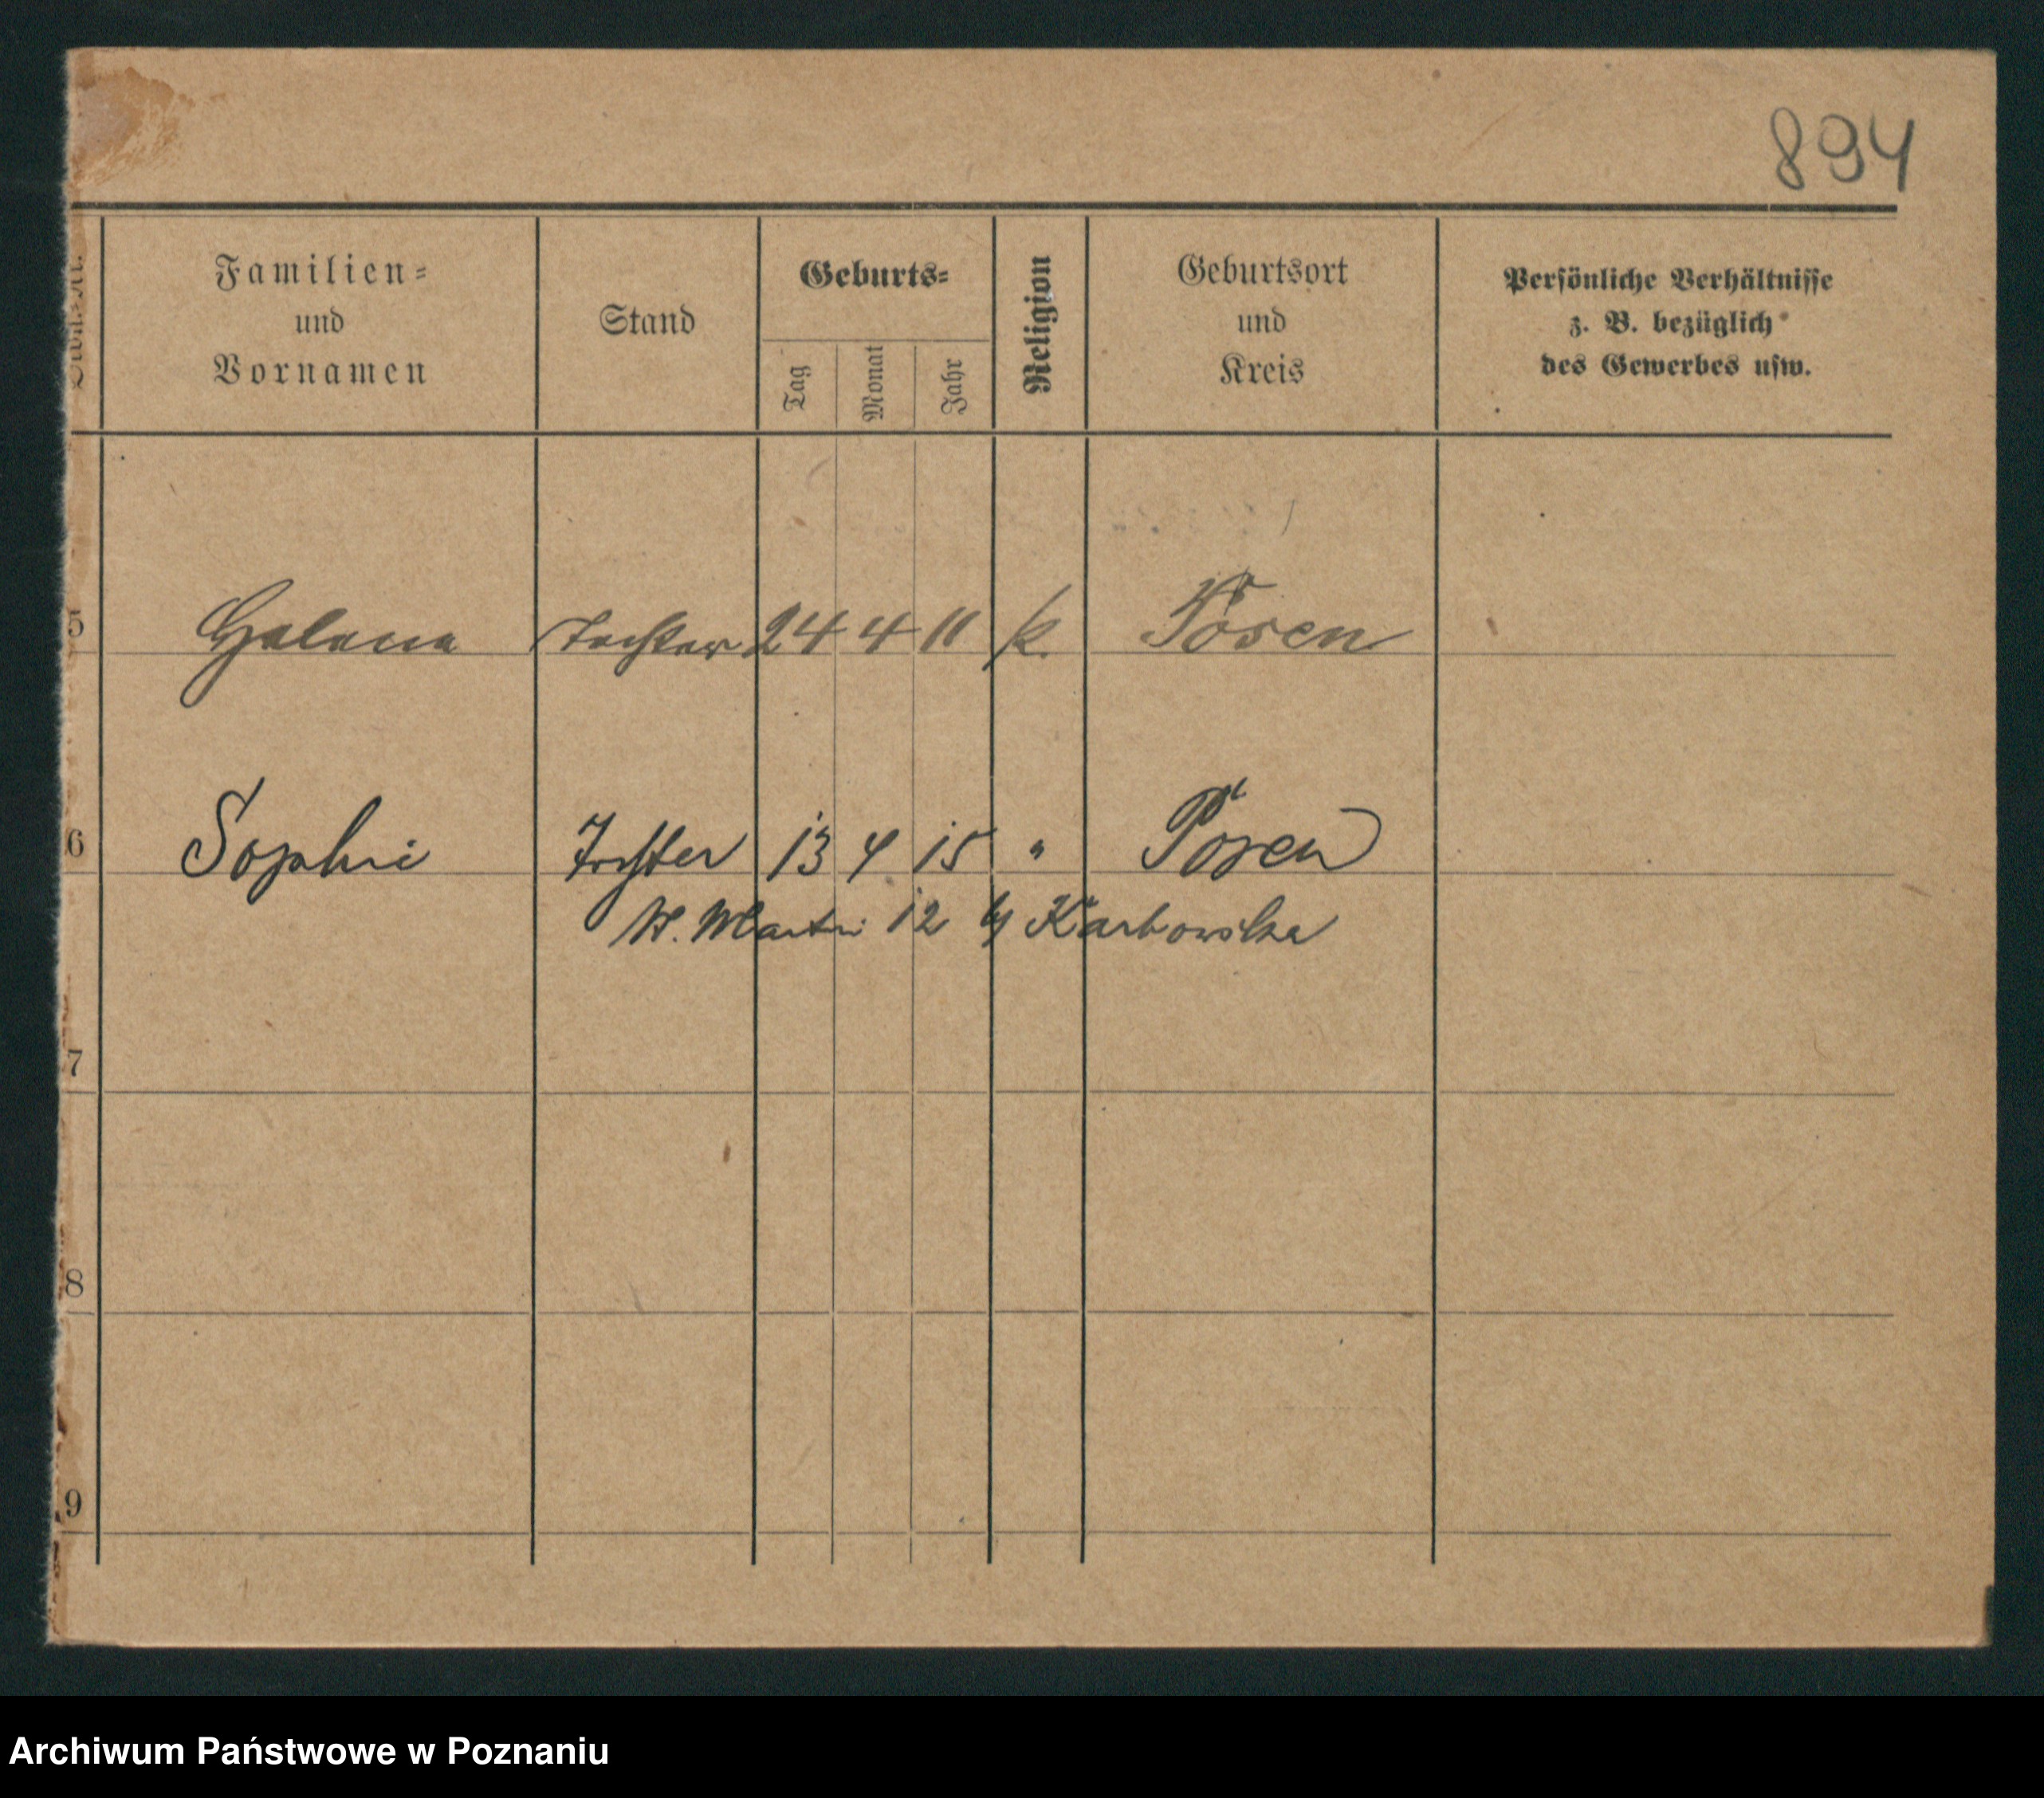 894
Familien-
und
Vornamen
Stand
Geburts-
Tag
Monat
Jahr
Religion
Geburtsort
und
Kreis
Persönliche Verhältnisse
z. B. bezüglich
des Gewerbes usw.
5 Helena Tochter 24 4 11 k. Posen
6 Sophie Tochter 13 4 15 " Posen
St. Martin 12 Karbowska
7
8
9
Archiwum Państwowe w Poznaniu